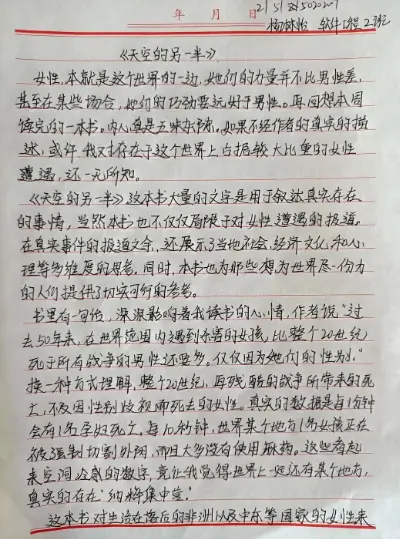 年 月 日
软件工程2班
《天空的另一半》
女性,本就是这个世界的一边,她们的力量并不比男性差,
甚至在某些场合,她们的巧劲要远好于男性。再回想本周
读完的一本书,内心真是五味杂陈。如果不经作者的真实的描
述,或许我对存在于这个世界上占据较大比重的女性
遭遇,还一无所知。
《天空的另一半》这本书大量的文字是用于叙述真实存在
的事情,当然本书也不仅仅局限于对女性遭遇的报道,
在真实事件的报道之余,还展示了当地社会,经济文化,和心
理等多维度的思考。同时,本书也为那些想为世界尽一份力
的人们提供了切实可行的参考。
书里有一句话,深深影响着我读书的心情,作者说:“过
去50年来,在世界范围内遇到杀害的女孩,比整个20世纪
死于所有战争的男性还要多。仅仅因为她们的性为“女”
换一种方式理解,整个20世纪,再残酷的战争所带来的死
亡,不及因性别歧视而死去的女性。真实的数据是每1分钟
会有1名孕妇死亡。每10秒钟,世界某个地方1名女孩正在
被强制切割外阴,而且大多没有使用麻药。这些看起
来空洞而感的数字,竟让我觉得世界上一定还有某个地方,
真实的存在“纳粹集中营。”
这本书对生活在落后的非洲以及中东等国家的女性来